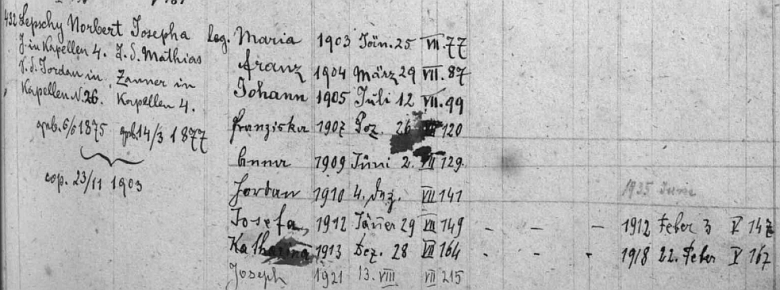 432 Lepschy Norbert Josepha leg. Maria 1903 Jän. 25 VII. 77
J. in Kapellen 4. T. d. Mathias
Franz 1904 März 29 VII. 87
S. d. Jordan in Zanner in
Johann 1905 Juli 12 VII. 99
Kapellen N. 26. Kapellen 4.
Franziska 1907 Dez. 26 VII 120
geb. 6/6 1875 geb. 14/3 1877
Anna 1909 Juni 2. VII 129.
cop. 23/11 1903
Jordan 1910 4. Dez. VII 141 1935 Juni
Josefa 1912 Jänner 29 VII 149 - - - 1912 Feber 3 V 147
Katharina 1913 Dez. 28 VII 164 - - - 1918 22. Feber V 167
Joseph 1921 13. VIII VII 215